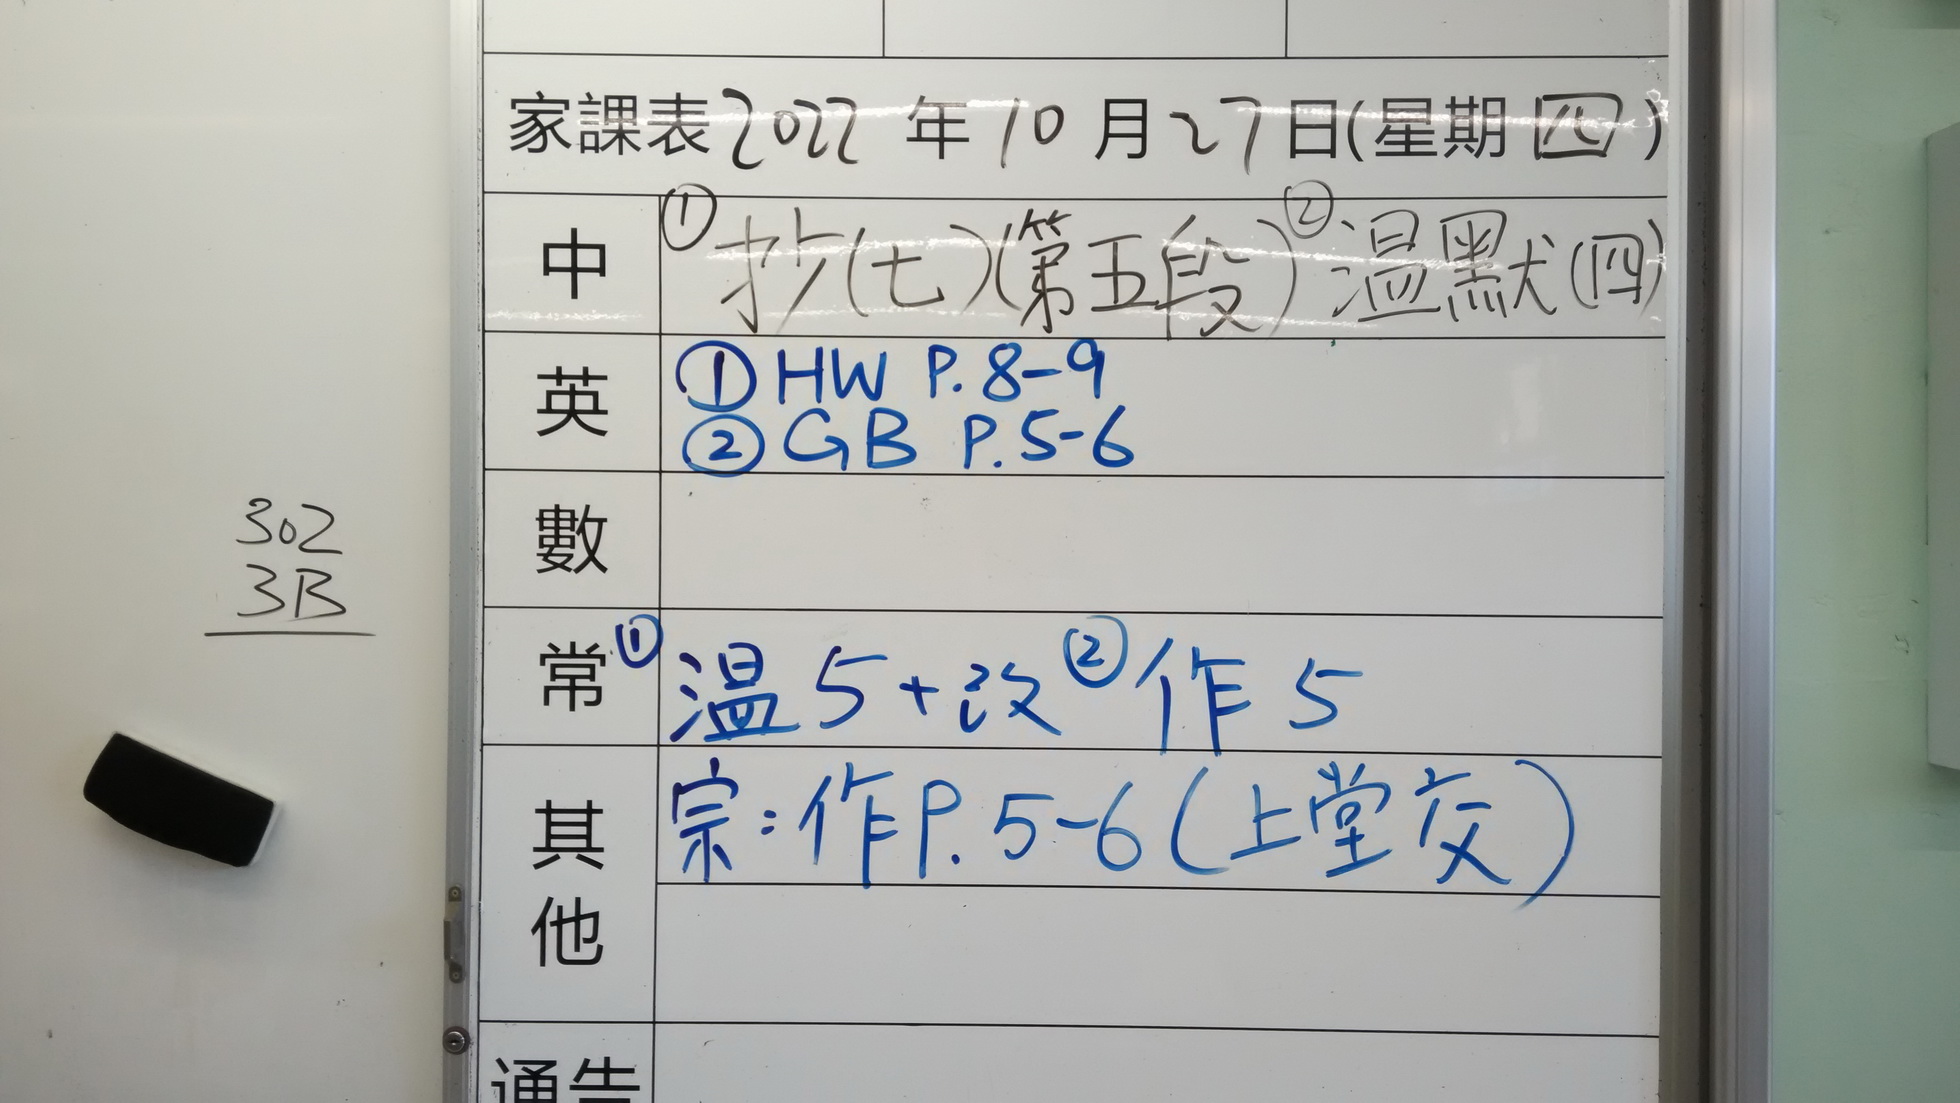 家課表 2022 年 10 月 27 日(星期 四)
中 ① 抄(七)(第五段) ② 温默(四)
英 ① HW P. 8-9
② GB P. 5-6
數
常 ① 温 5 + 改 ② 作 5
其他 宗: 作 P. 5-6 (上堂交)
通告
302
3B